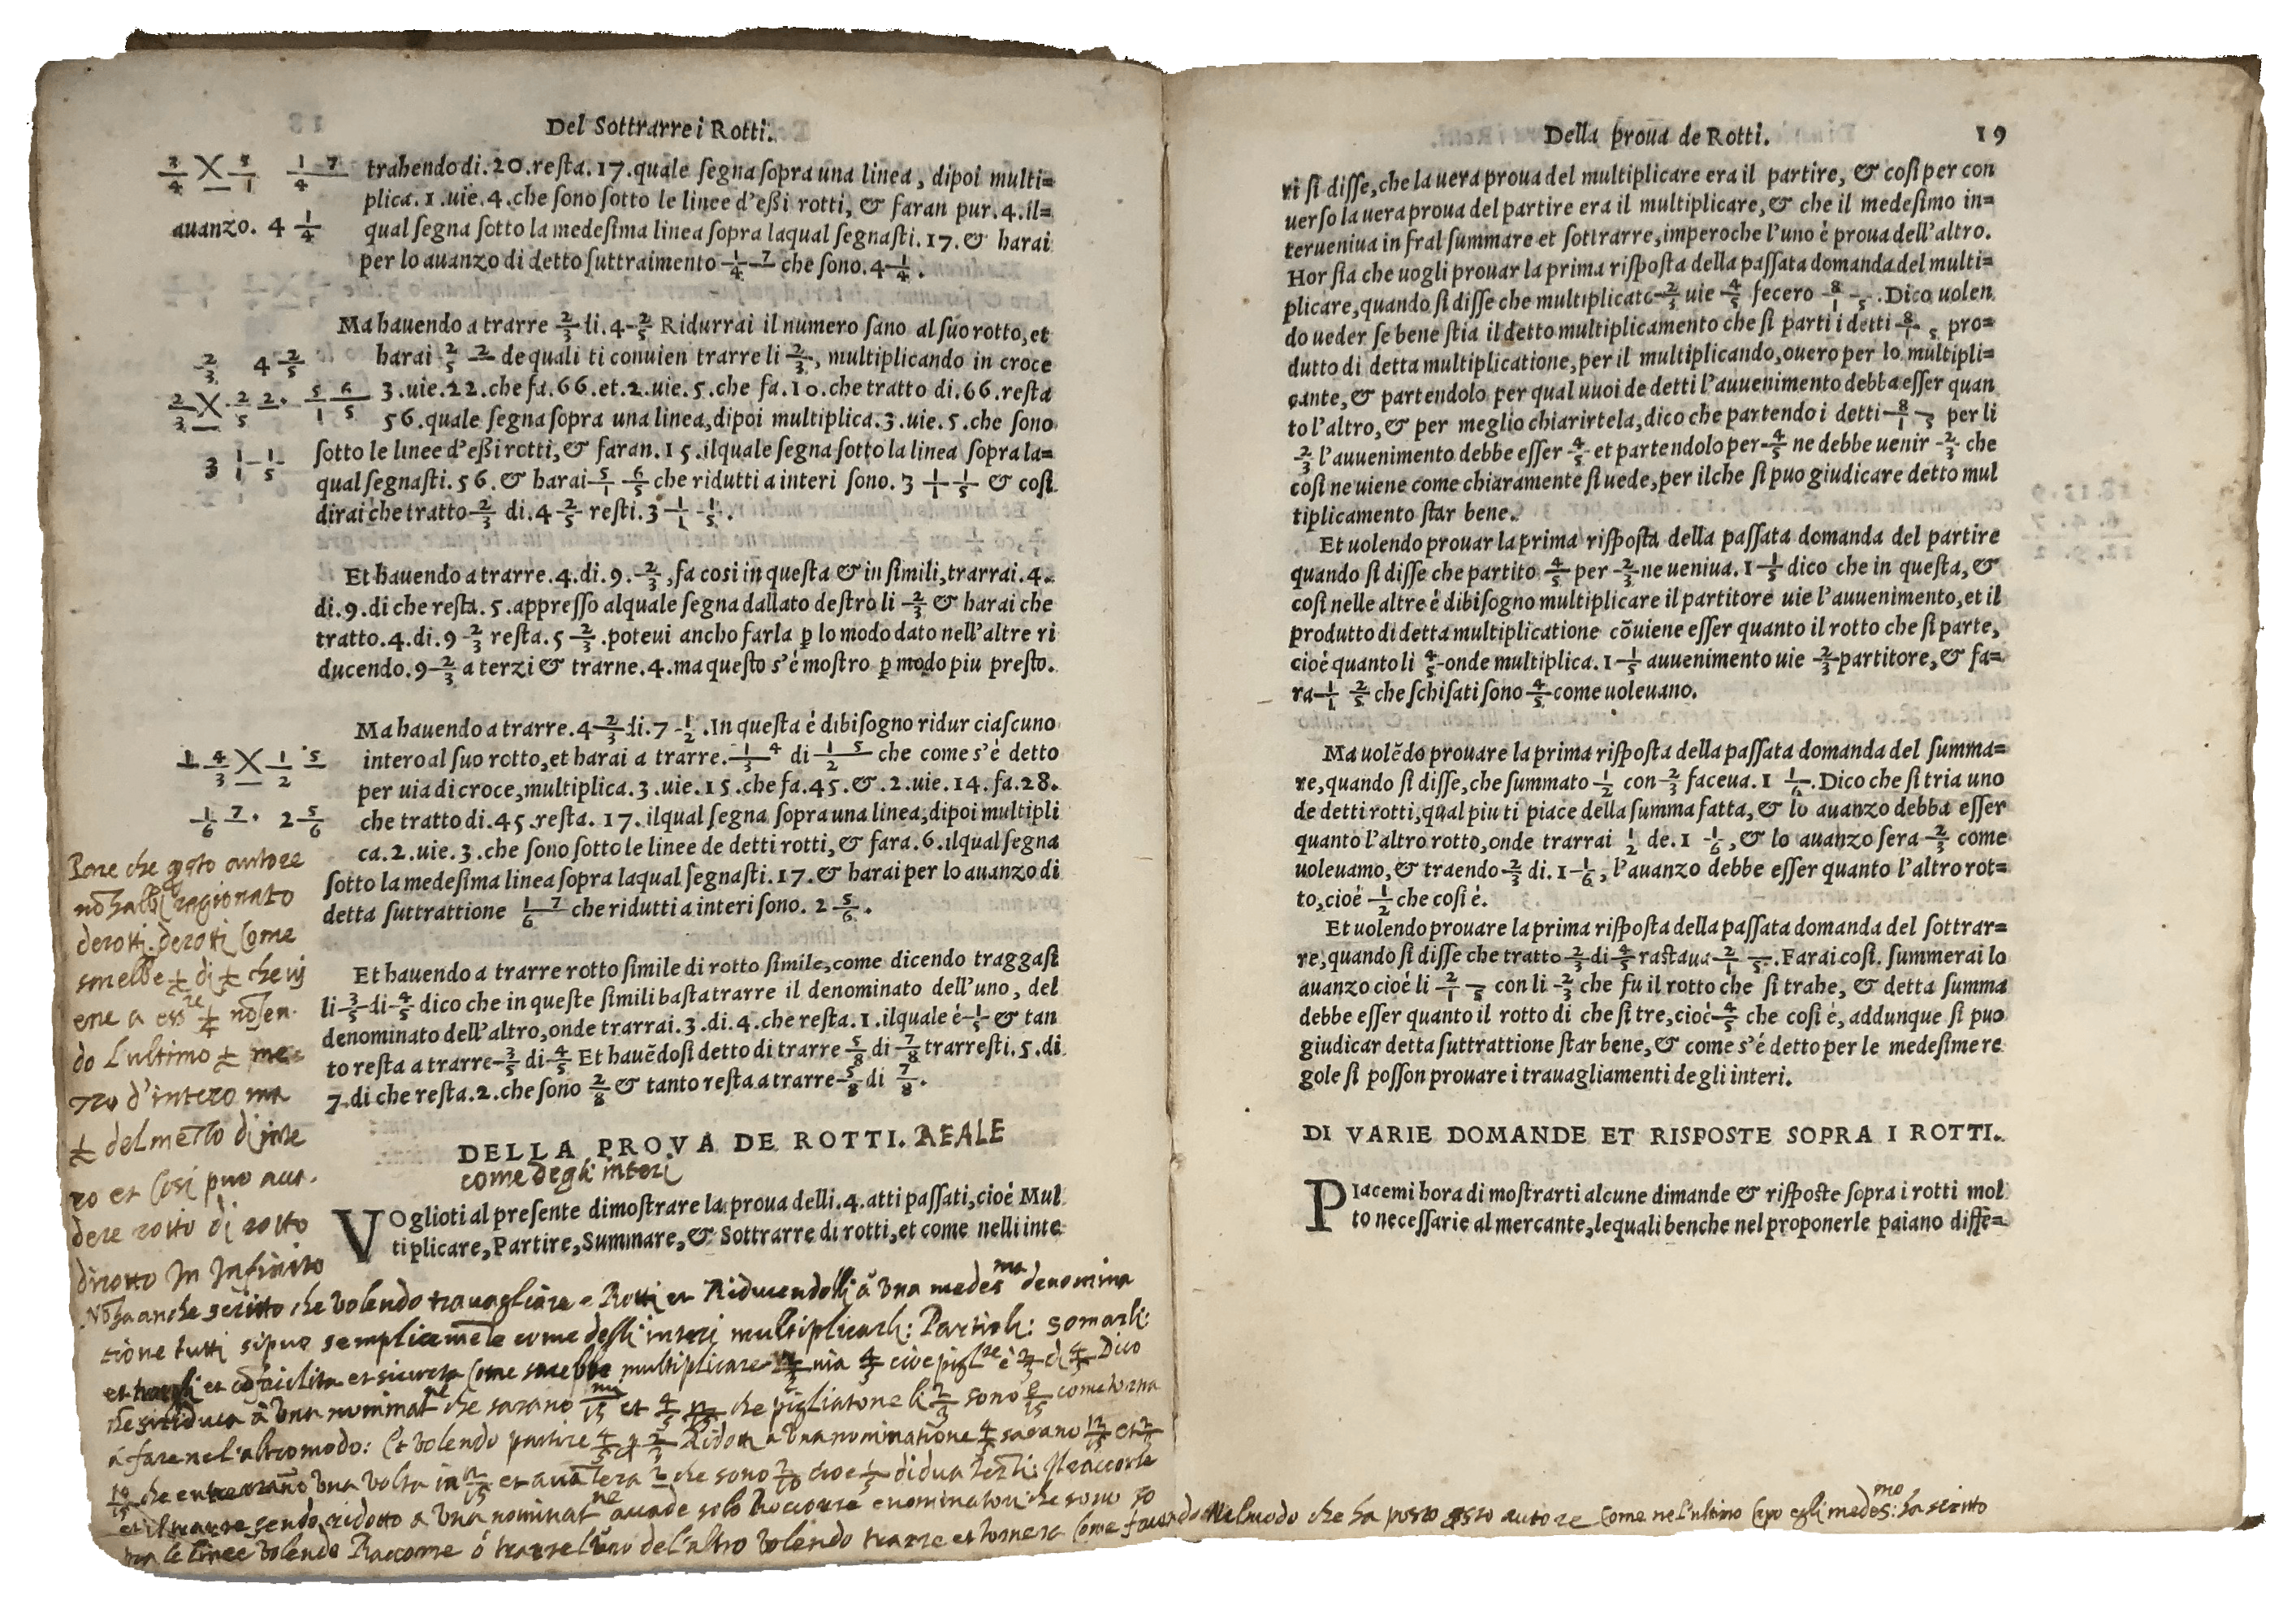 Del Sottrarre i Rotti.
2/4 X 5/1 17/4
auanzo. 4 1/4
trahendo di. 20. resta. 17. quale segna sopra una linea, dipoi multi=
plica. 1. uie. 4. che sono sotto le linee d'eßi rotti, & faran pur. 4. il=
qual segna sotto la medesima linea sopra laqual segnasti. 17. & harai
per lo auanzo di detto suttraimento 17/4 che sono. 4 1/4.
2/3 4 2/5
2/3 X 22/5. 56/15
3 11/15
Ma hauendo a trarre 2/3 di. 4 2/5 Ridurrai il numero sano al suo rotto, et
harai 22/5 de quali ti conuien trarre li 2/3, multiplicando in croce
3. uie. 22. che fa. 66. et. 2. uie. 5. che fa. 10. che tratto di. 66. resta
56. quale segna sopra una linea, dipoi multiplica. 3. uie. 5. che sono
sotto le linee d'eßi rotti, & faran. 15. ilquale segna sotto la linea sopra la=
qual segnasti. 56. & harai 56/15 che ridutti a interi sono. 3 11/15 & cosi
dirai che tratto 2/3 di. 4 2/5 resti. 3 11/15.
Et hauendo a trarre. 4. di. 9. 2/3, fa cosi in questa & in simili, trarrai. 4.
di. 9. di che resta. 5. appresso alquale segna dallato destro li 2/3 & harai che
tratto. 4. di. 9 2/3 resta. 5 2/3. poteui ancho farla ꝑ lo modo dato nell'altre ri
ducendo. 9 2/3 a terzi & trarne. 4. ma questo s'é mostro ꝑ modo piu presto.
14/3 X 15/2
17/6. 2 5/6
Ma hauendo a trarre. 4 2/3 di. 7 1/2. In questa é dibisogno ridur ciascuno
intero al suo rotto, et harai a trarre. 14/3 di 15/2 che come s'é detto
per uia di croce, multiplica. 3. uie. 15. che fa. 45. &. 2. uie. 14. fa. 28.
che tratto di. 45. resta. 17. ilqual segna sopra una linea, dipoi multipli
ca. 2. uie. 3. che sono sotto le linee de detti rotti, & fara. 6. ilqual segna
sotto la medesima linea sopra laqual segnasti. 17. & harai per lo auanzo di
detta suttrattione 17/6 che ridutti a interi sono. 2 5/6.
Et hauendo a trarre rotto simile di rotto simile, come dicendo traggasi
li 3/5 di 4/5 dico che in queste simili basta trarre il denominato dell'uno, del
denominato dell'altro, onde trarrai. 3. di. 4. che resta. 1. ilquale é 1/5 & tan
to resta a trarre 3/5 di 4/5 Et hauẽdosi detto di trarre 5/8 di 7/8 trarresti. 5. di
7. di che resta. 2. che sono 2/8 & tanto resta a trarre 5/8 di 7/8.
Pare che qsto autore
nõ habbi ragionato
de rotti. de rotti Come
sarebbe 1/2 di 1/2 che vi
ene a essre 1/4 nõ sen.
do L'ultimo 1/2 me=
zzo d'intero ma
1/2 del mezzo di inte
ro et Cosi puo acca.
dere rotto di rotto
di rotto In Infinito
DELLA PROVA DE ROTTI. REALE
come degli interi
VOglioti al presente dimostrare la proua delli. 4. atti passati, cioé Mul
tiplicare, Partire, Summare, & Sottrarre di rotti, et come nelli inte
Nõ ha anche scritto che volendo trauagliare Rotti et Riducendoli à vna medesma denomina
tione tutti si puo semplicemẽte come degli interi multiplicarli: Partirli: somarli:
et et cõ facilita et sicurezza Come sarebbe multiplicare 2/3 uia 4/5 cioe piglre è 2/3 di 4/5 Dico
che si riduca à vna nominatne che sarano et 4/5 che pigliatone li 2/3 sono 8/15 come torna
á fare nel altro modo: Et volendo partire 4/5 ꝑ 2/3 Ridotti a vna nominatione 4/5 sarano 12/15 et 2/3
10/15 che entrerrano vna volta in 12/15 et auãzera 2 che sono 2/10 cioe 1/5 di dua terzi: Il raccorle
et il trarre sendo ridotto a vna nominatne accade solo Raccorre e nominatori che sono so
pra le linee volendo Raccorre ó trarre l'uno del'altro volendo trarre et tornera Come facendo nel modo che ha posto qsto autore Come nel'ultimo Capo egli medesmo: ha scritto
Della proua de Rotti. 19
ri si disse, che la uera proua del multiplicare era il partire, & cosi per con
uerso la uera proua del partire era il multiplicare, & che il medesimo in=
terueniua in fral summare et sottrarre, imperoche l'uno é proua dell'altro.
Hor sia che uogli prouar la prima risposta della passata domanda del multi=
plicare, quando si disse che multiplicato 2/3 uie 4/5 fecero 8/15. Dico uolen
do ueder se bene stia il detto multiplicamento che si parti i detti 8/15 pro=
dutto di detta multiplicatione, per il multiplicando, ouero per lo multipli=
cante, & partendolo per qual uuoi de detti l'auuenimento debba esser quan
to l'altro, & per meglio chiarirtela, dico che partendo i detti 8/15 per li
2/3 l'auuenimento debbe esser 4/5 et partendolo per 4/5 ne debbe uenir 2/3 che
cosi ne uiene come chiaramente si uede, per ilche si puo giudicare detto mul
tiplicamento star bene.
Et uolendo prouar la prima risposta della passata domanda del partire
quando si disse che partito 4/5 per 2/3 ne ueniua. 1 1/5 dico che in questa, &
cosi nelle altre é dibisogno multiplicare il partitore uie l'auuenimento, et il
produtto di detta multiplicatione cõuiene esser quanto il rotto che si parte,
cioé quanto li 4/5 onde multiplica. 1 1/5 auuenimento uie 2/3 partitore, & fa=
ra 12/15 che schisati sono 4/5 come uoleuano.
Ma uolẽdo prouare la prima risposta della passata domanda del summa=
re, quando si disse, che summato 1/2 con 2/3 faceua. 1 1/6. Dico che si tria uno
de detti rotti, qual piu ti piace della summa fatta, & lo auanzo debba esser
quanto l'altro rotto, onde trarrai 1/2 de. 1 1/6, & lo auanzo sera 2/3 come
uoleuamo, & traendo 2/3 di. 1 1/6, l'auanzo debbe esser quanto l'altro rot=
to, cioé 1/2 che cosi é.
Et uolendo prouare la prima risposta della passata domanda del sottrar=
re, quando si disse che tratto 2/3 di 4/5 rastaua 2/15. Farai cosi. summerai lo
auanzo cioé li 2/15 con li 2/3 che fu il rotto che si trahe, & detta summa
debbe esser quanto il rotto di che si tre, cioé 4/5 che cosi é, addunque si puo
giudicar detta suttrattione star bene, & come s'é detto per le medesime re
gole si posson prouare i trauagliamenti de gli interi.
DI VARIE DOMANDE ET RISPOSTE SOPRA I ROTTI.
PIacemi hora di mostrarti alcune dimande & risposte sopra i rotti mol
to necessarie al mercante, lequali benche nel proponerle paiano diffe=